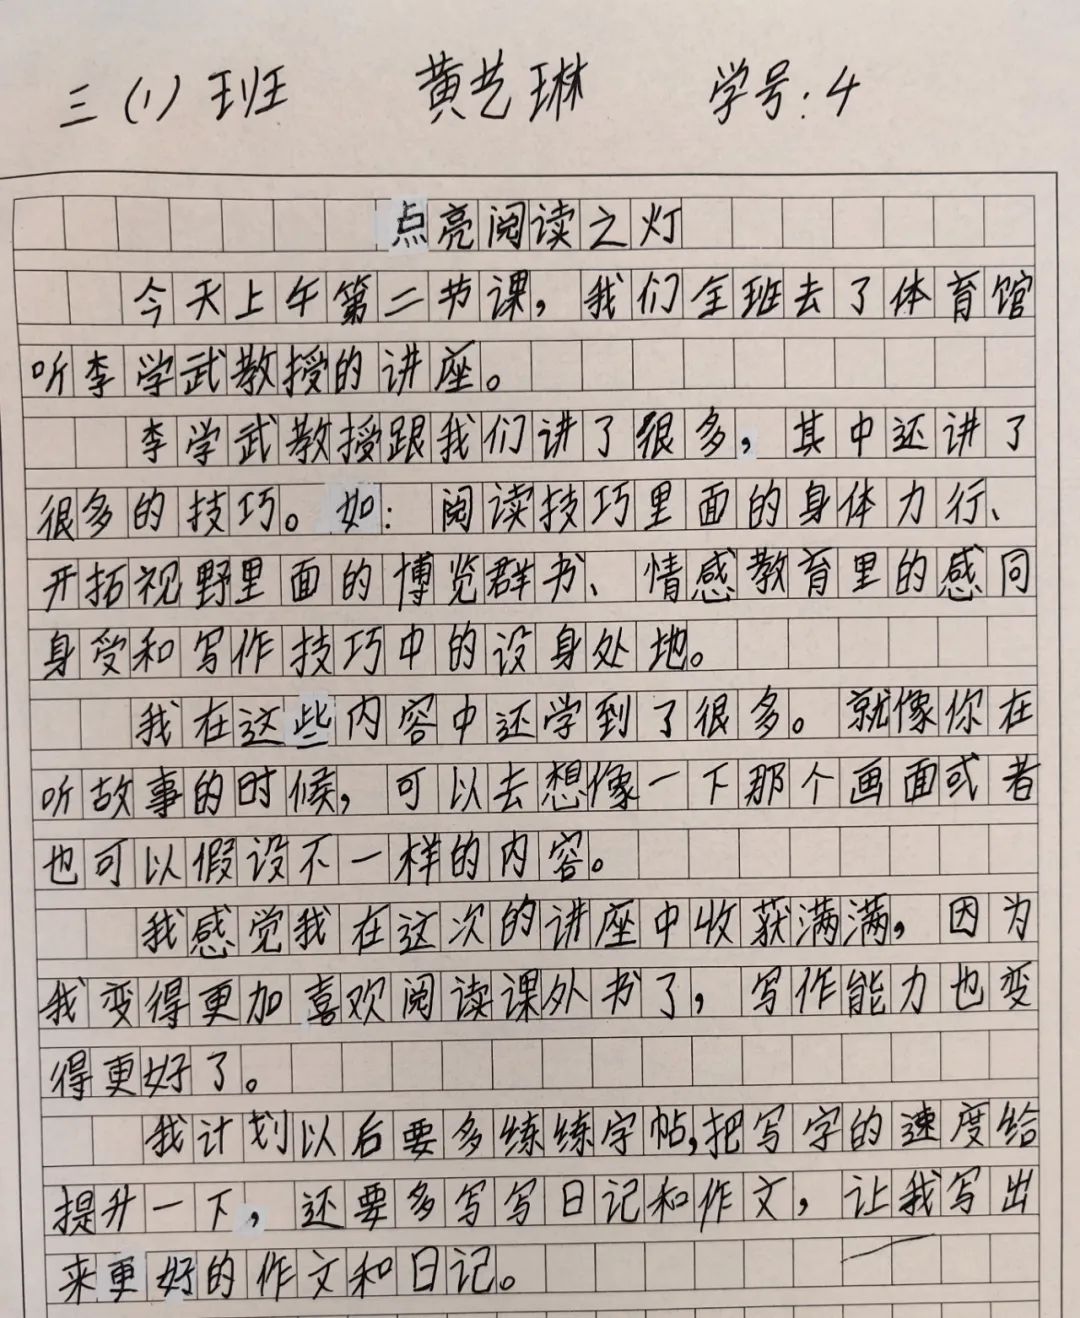 三(1)班 黄艺琳 学号:4
点亮阅读之灯
今天上午第二节课,我们全班去了体育馆
听李学武教授的讲座。
李学武教授跟我们讲了很多,其中还讲了
很多的技巧。如:阅读技巧里面的身体力行、
开拓视野里面的博览群书、情感教育里的感同
身受和写作技巧中的设身处地。
我在这些内容中还学到了很多。就像你在
听故事的时候,可以去想像一下那个画面或者
也可以假设不一样的内容。
我感觉我在这次的讲座中收获满满,因为
我变得更加喜欢阅读课外书了,写作能力也变
得更好了。
我计划以后要多练练字帖,把写字的速度给
提升一下,还要多写写日记和作文,让我写出
来更好的作文和日记。